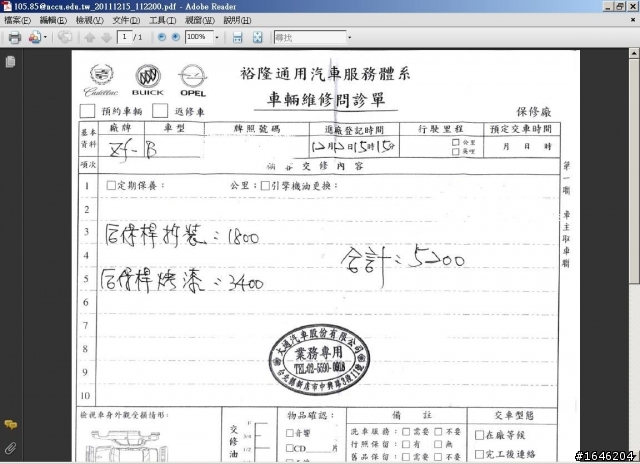 105.85@accu.edu.tw_20111215_112200.pdf - Adobe Reader
檔案(F) 編輯(E) 檢視(V) 文件(D) 工具(T) 視窗(W) 說明(H)
1 / 1
100%
尋找
Cadillac BUICK OPEL
裕隆通用汽車服務體系
車輛維修問診單
預約車輛 返修車 保修廠
基本資料 廠牌 車型 牌照號碼 進廠登記時間 行駛里程 預定交車時間
12月12日15時15分 公里 英哩 月 日 時
項次 交修內容
1 定期保養: 公里: 引擎機油更換:
2
3 后保桿拆裝:1800
4 合計:5200
5 后保桿烤漆:3400
6
7
8
9
10
大通汽車股份有限公司
業務專用
第一聯
檢視車身外觀受損情形: 交修油 物品確認: 備註 交車型態
F
3/4
1/2
音響 洗車服務: 需要 不要 在廠等候
CD 片 行照保留: 有 無
舊品保留: 需要 不要 完工後連絡
#1646204